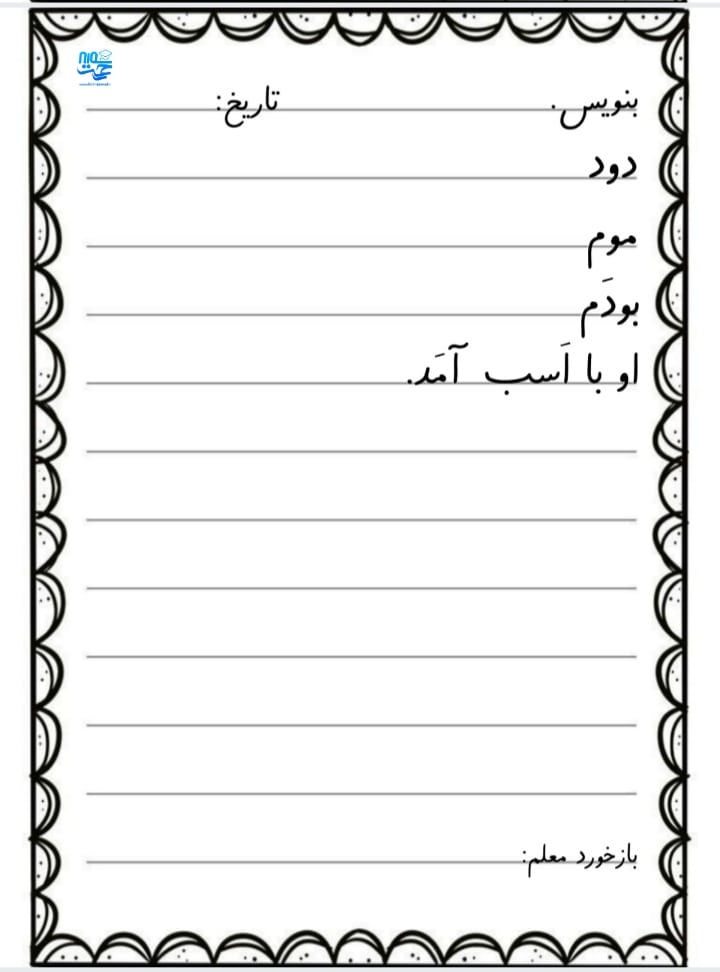 بنویس. تاریخ:
دود
موم
بودَم
او با اَسب آمَد.
بازخورد معلم: